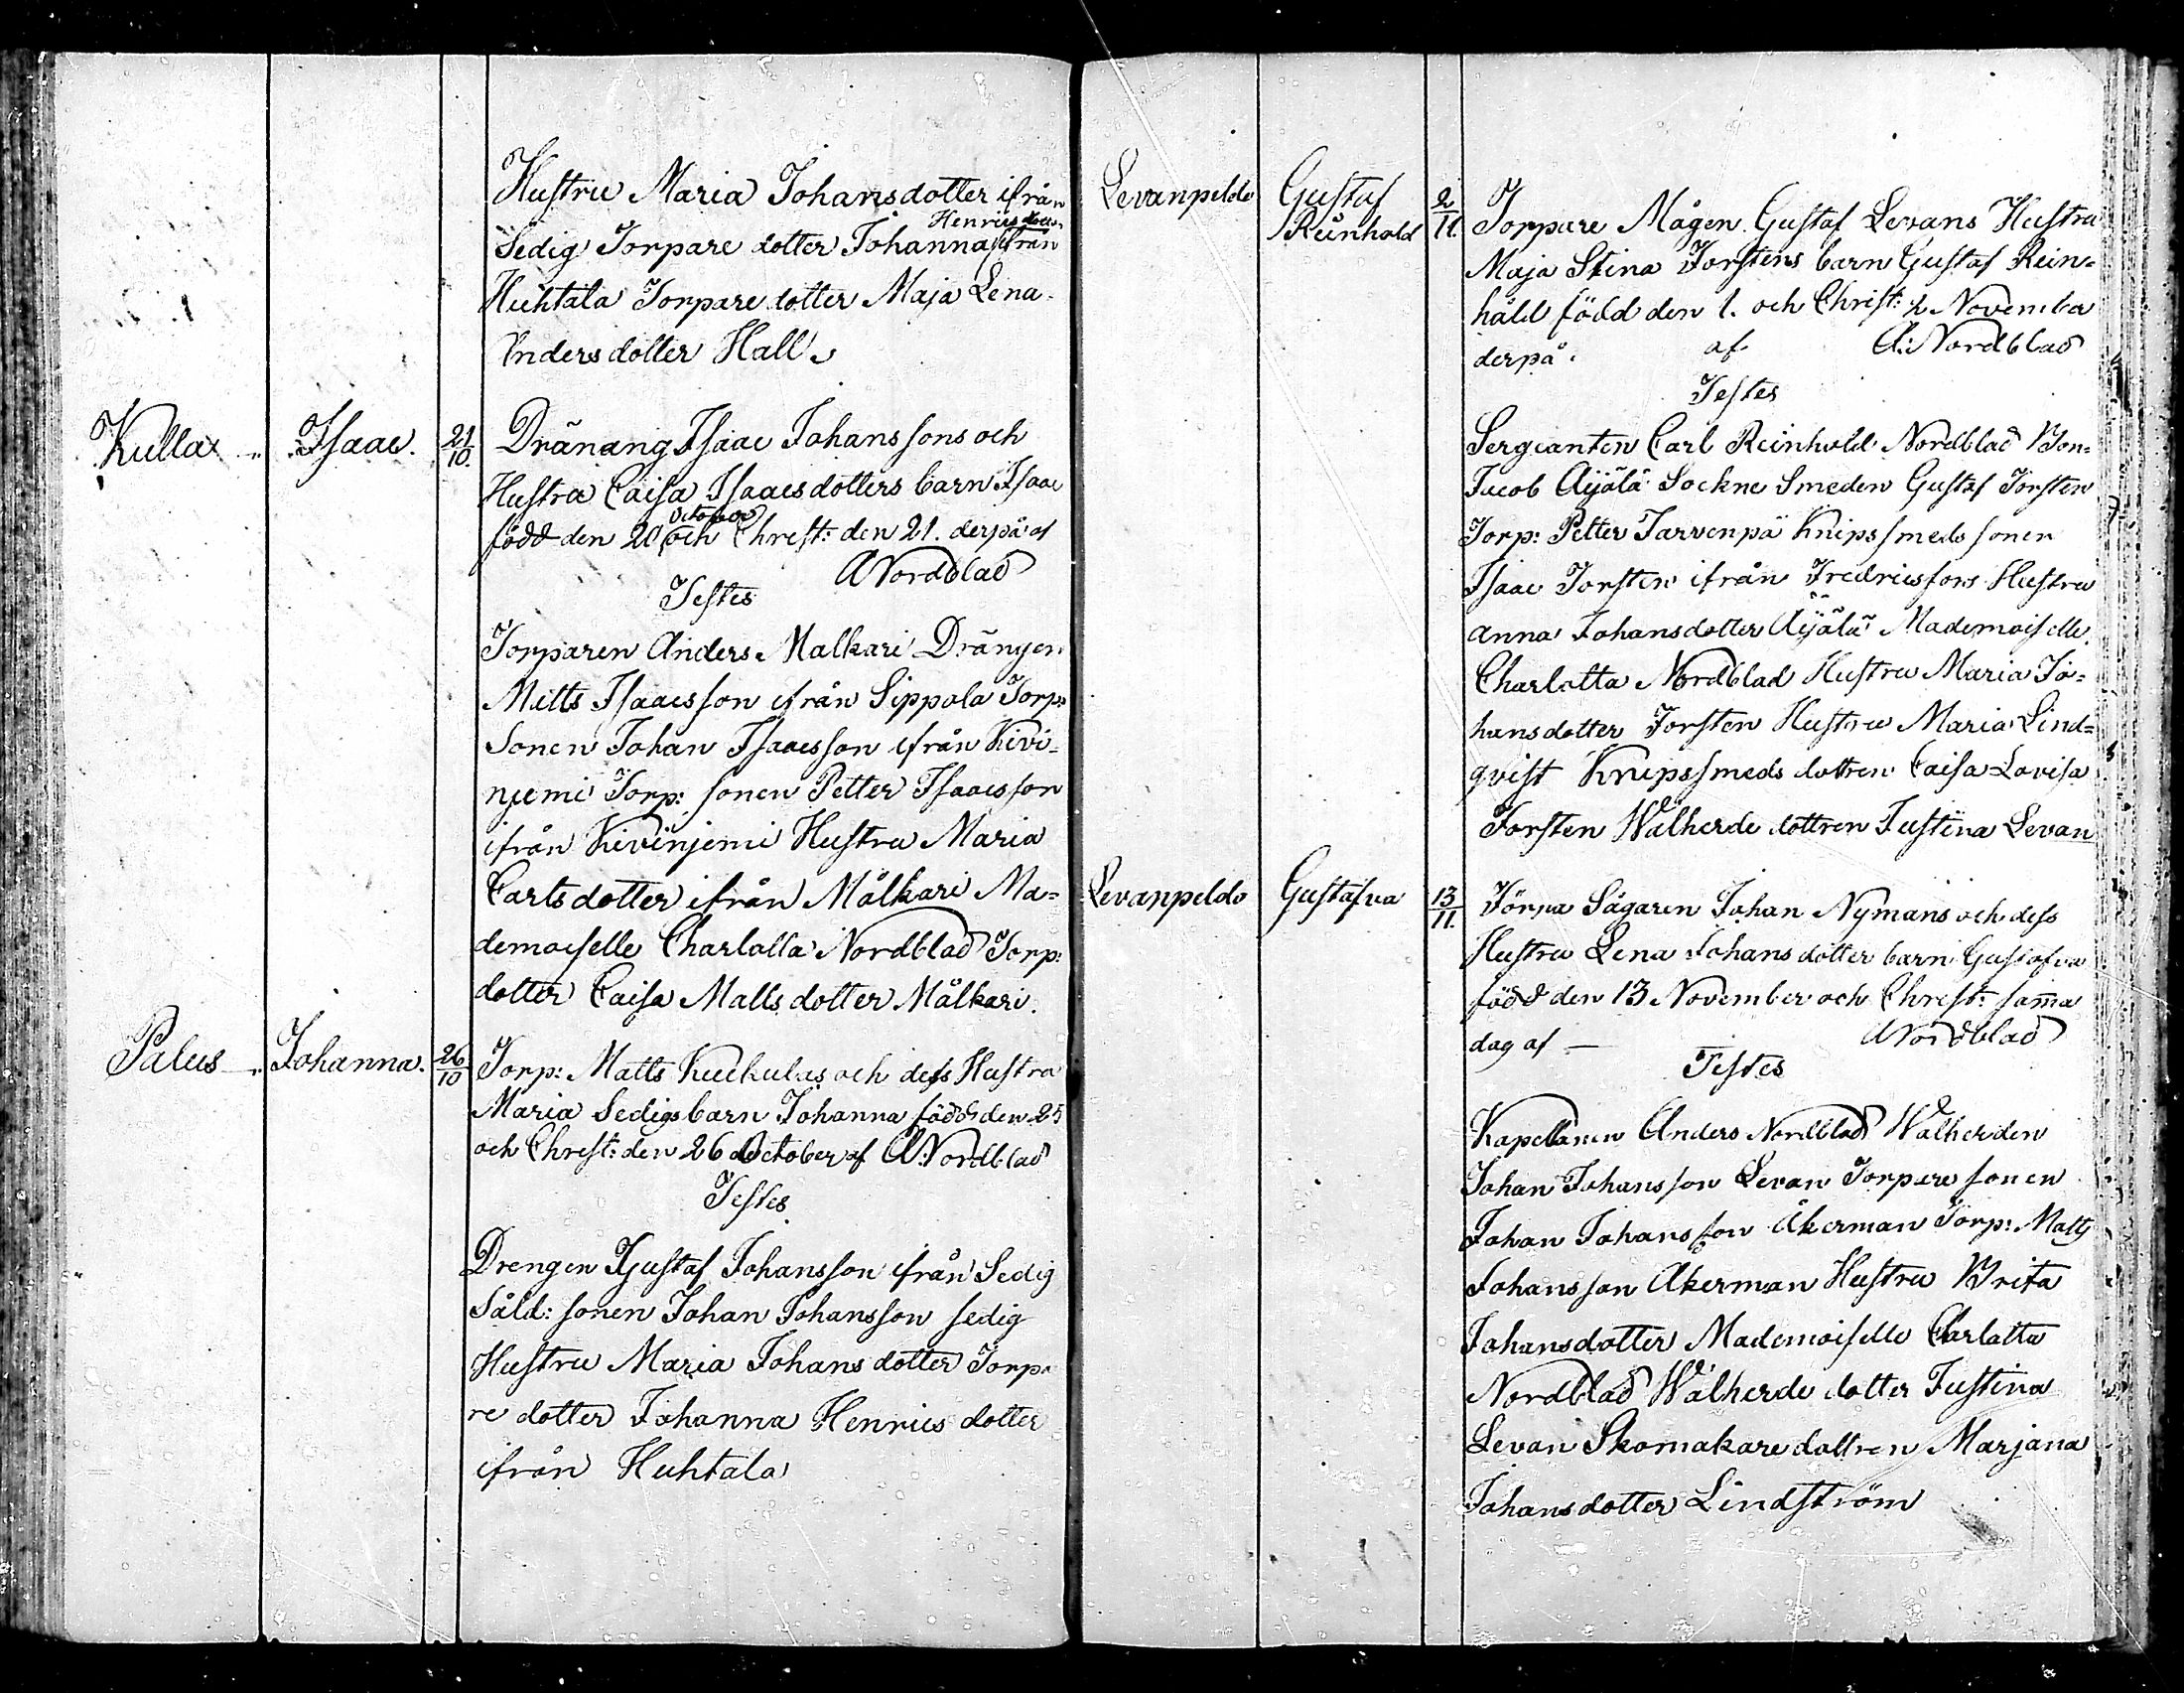 Hustru Maria Johansdotter ifrån
Henricsdotter
Sedig Torpare dotter Johanna ifrån
Huhtala Torpare dotter Maja Lena
Andersdotter Hall
Kulla Isaac. 21/10. Dränang Isaac Johanssons och
Hustru Caisa Isaacsdotters barn Isaac
October
född den 20 och Christ: den 21. derpå af
A Nordblad
Testes
Torparen Anders Malkari Drängen
Matts Isaacsson ifrån Sippola Torp:
Sonen Johan Isaacsson ifrån Kivi=
njemi Torp: sonen Petter Isaacsson
ifrån Kivinjemi Hustru Maria
Carlsdotter ifrån Målkari Ma=
demoiselle Charlotta Nordblad Torp:
dotter Caisa Matts dotter Målkari.
Palus Johanna. 26/10 Torp: Matts Kuckulas och dess Hustru
Maria Sedigs barn Johanna född den 25
och Christ: den 26 October af A: Nordblad
Testes
Drengen Gustaf Johansson ifrån Sedig
Såld: sonen Johan Johansson Sedig
Hustru Maria Johans dotter Torpa
re dotter Johanna Henrics dotter
ifrån Huhtala
Levanpeldo Gustaf 2/11. Torpare Mågen Gustaf Levans Hustru
Reinhold
Maja Stina Forstens barn Gustaf Rein=
håld född den 1. och Christ: 2 November
derpå. af A: Nordblad
Testes
Sergeanten Carl Reinhold Nordblad Bon:
Jacob Äijälä Sockne Smeden Gustaf Forsten
Torp: Petter Tarvenpä Knipssmeds sonen
Isaac Forsten ifrån Fredricsfors Hustru
Anna Johansdotter Äijälä Mademoiselle
Charlotta Nordblad Hustru Maria Jo=
hansdotter Forsten Hustru Maria Lind=
qvist Knipssmeds dottren Caisa Lovisa
Forsten Wålherde dottren Justina Levan
Levanpeldo Gustafva 13/11. Förra Sågaren Johan Nymans och dess
Hustru Lena Johans dotter barn Gustafva
född den 13 November och Christ: samma
dag af — A Nordblad
Testes
Kapellanen Anders Nordblad Wålherden
Johan Johansson Levan Torpare sonen
Johan Johansson Åkerman Torp: Matts
Johansson Åkerman Hustru Brita
Johansdotter Mademoiselle Charlotta
Nordblad Wålherde dotter Justina
Levan Skomakare dottren Marjana
Johansdotter Lindström